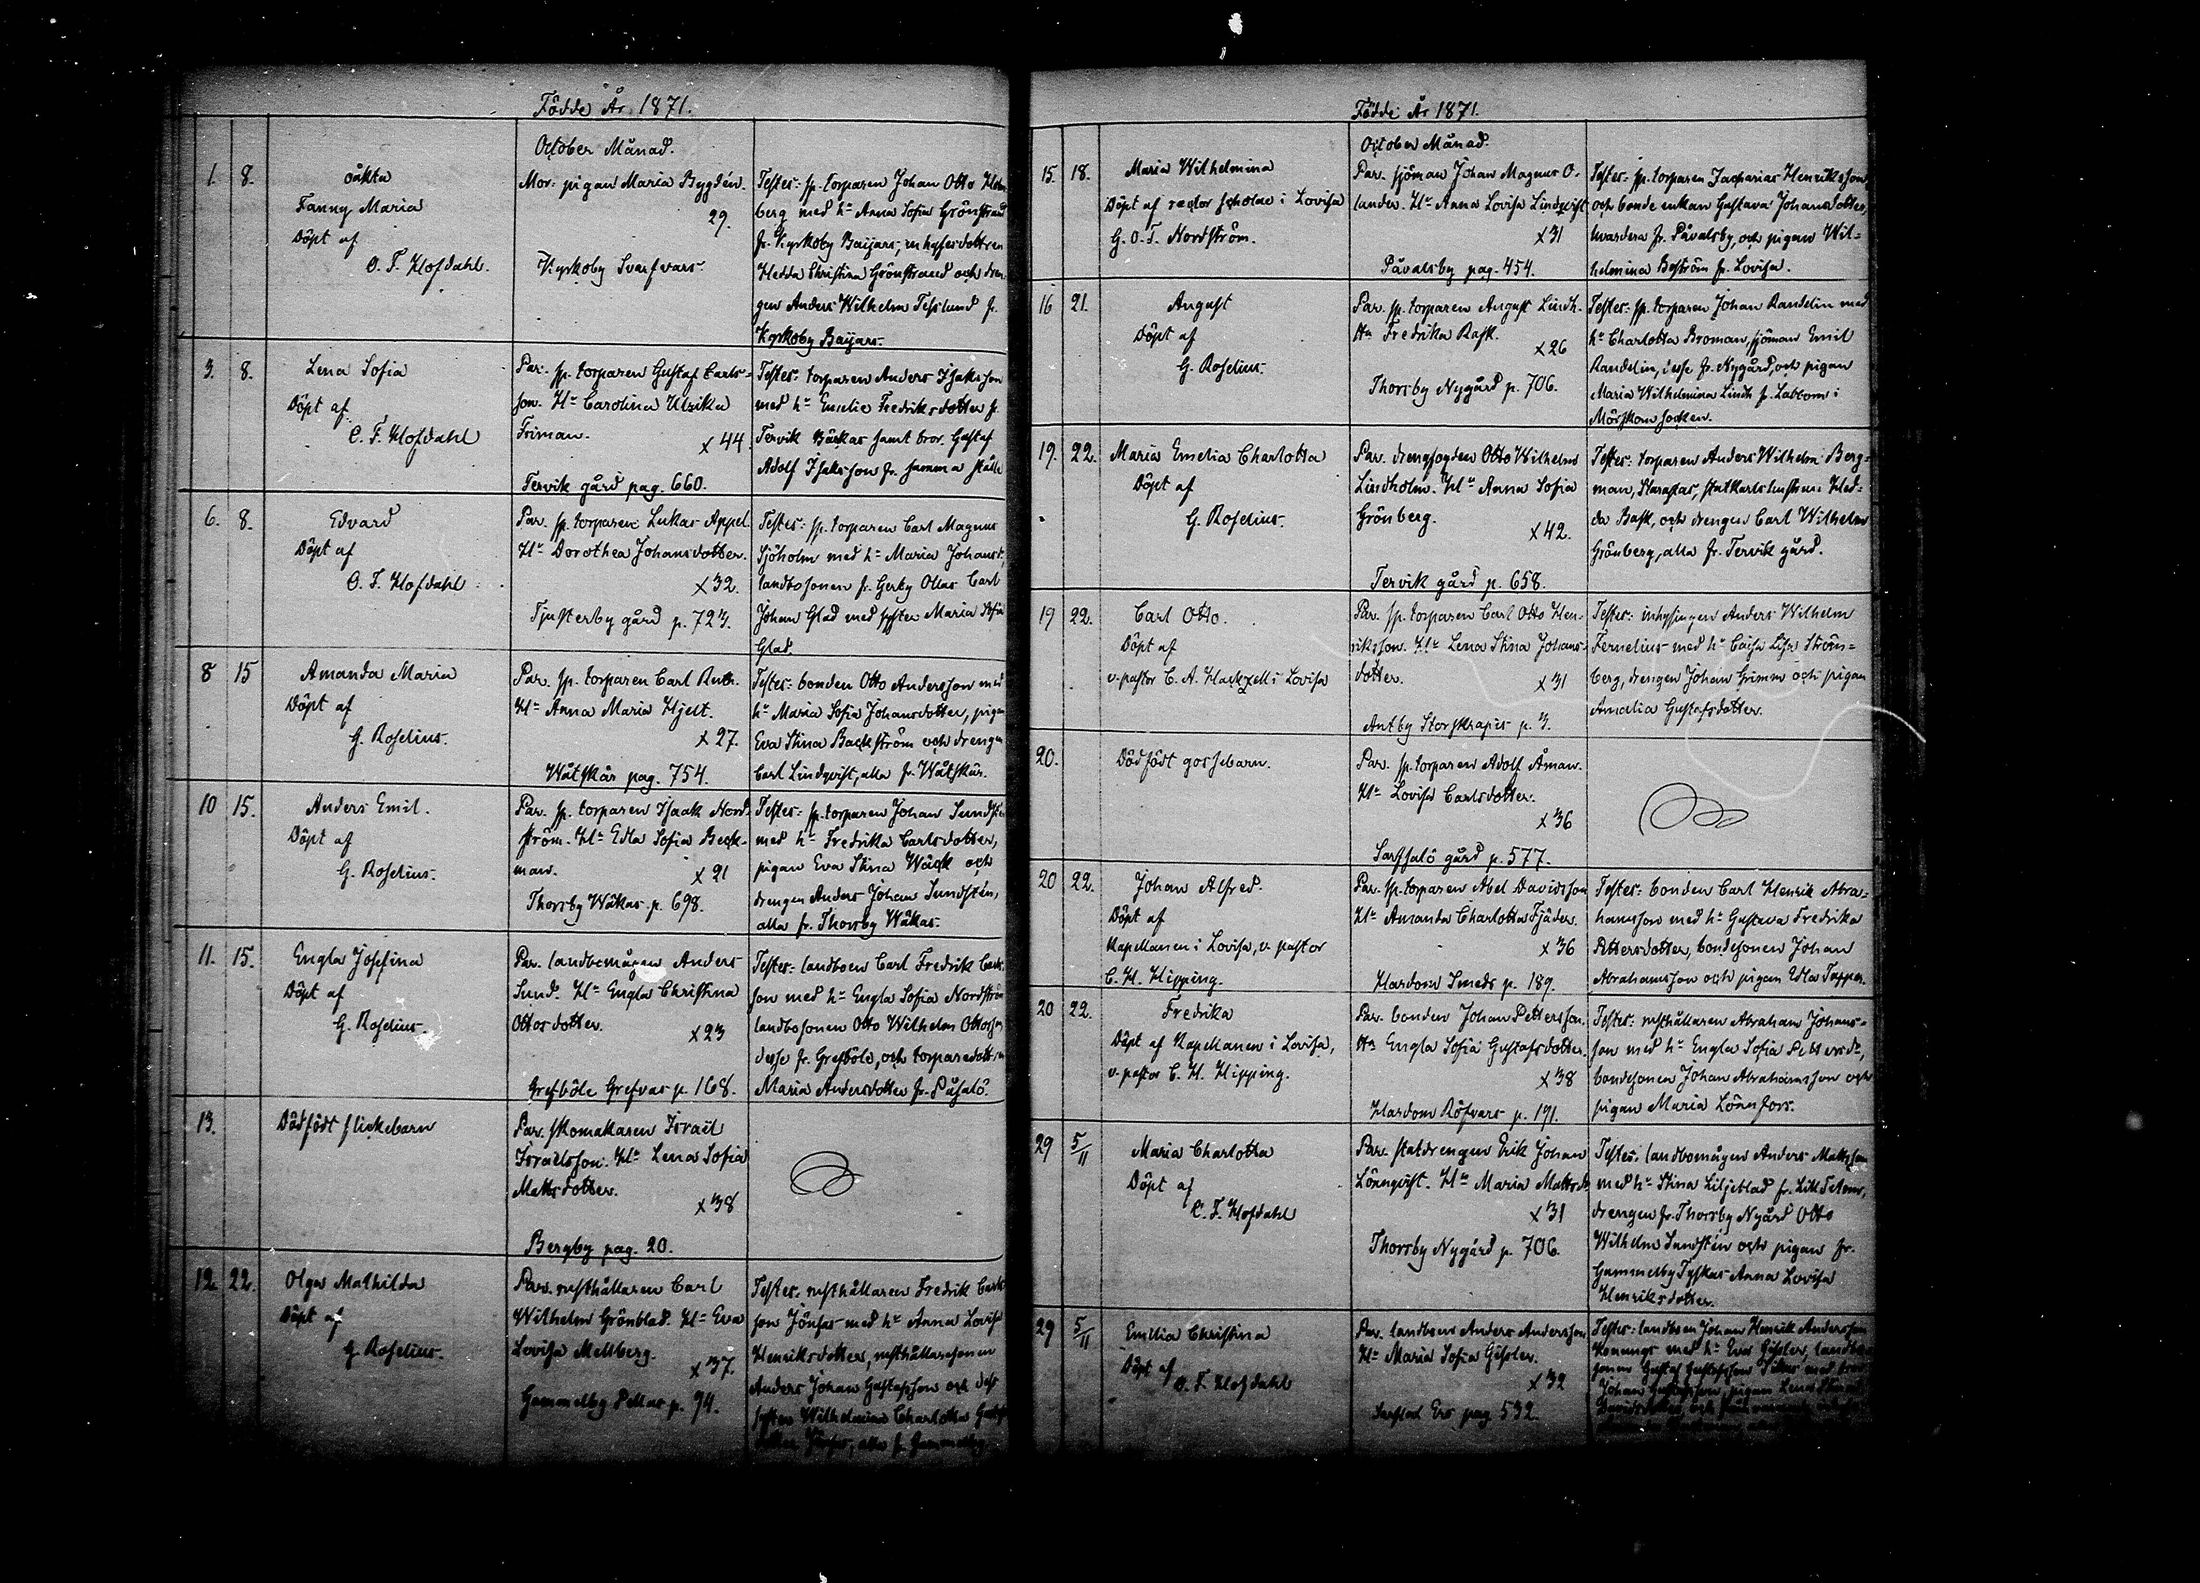 Födde År 1871.
October Månad.
1. 8. oäkta
Fanny Maria
Döpt af
C. F. Hofdahl.
Mor: pigan Maria Bygdén.
29.
Kyrkoby Svarfvars.
Testes: sp. torparen Johan Otto Holm
berg med h: Anna Sofia Grönstrand
fr. Kyrkoby Baijars, inhysesdottren
Hedda Christina Grönstrand och dren
gen Anders Wilhelm Teslund fr.
Kyrkoby Baijars.
3. 8. Lena Sofia
Döpt af
C. F. Hofdahl
Par: sp. torparen Gustaf Carls=
son. H: Carolina Ulrika
Friman.
x 44.
Tervik gård pag. 660.
Testes: torparen Anders Isaksson
med h: Emelie Fredriksdotter fr.
Tervik Bäckas samt bror. Gustaf
Adolf Isaksson fr. samma ställe
6. 8. Edvard
Döpt af
C. F. Hofdahl
Par. sp. torparen Lukas Appel.
H: Dorothea Johansdotter.
x 32.
Tjusterby gård p. 723.
Testes: sp. torparen Carl Magnus
Sjöholm med h: Maria Johansd,
landbosonen fr. Gerky Ollas Carl
Johan Glad med syster Maria Sofia
Glad.
8 15 Amanda Maria
Döpt af
G. Roselius.
Par. sp. torparen Carl Ruth.
H: Anna Maria Hjelt.
x 27.
Wåtskär pag. 754.
Testes: bonden Otto Andersson med
h: Maria Sofia Johansdotter, pigan
Eva Stina Backström och drengen
Carl Lindqvist, alla fr. Wåtskär.
10 15. Anders Emil.
Döpt af
G. Roselius.
Par. sp. torparen Isaak Nord=
ström. H: Edla Sofia Beck-
man.
x 21
Thorsby Wäkas p. 698.
Testes: sp. torparen Johan Sundstén
med h: Fredrika Carlsdotter,
pigan Eva Stina Wäck och
drengen Anders Johan Sundstén,
alla fr. Thorsby Wäkas.
11. 15. Engla Josefina
Döpt af
G. Roselius.
Par. landbomågen Anders
Sund. H: Engla Christina
Ottosdotter.
x 23
Grefböle Grefvas p. 168.
Testes: landboen Carl Fredrik Carls
son med h: Engla Sofia Nordström
landbosonen Otto Wilhelm Ottosson
desse fr. Grefböle, och torparedottren
Maria Andersdotter fr. Påsalö.
13. Dödfödt flickebarn
Par. skomakaren Israel
Israelsson. H: Lena Sofia
Mattsdotter.
x 38
Bergby pag. 20.
12. 22. Olga Mathilda
Döpt af
G. Roselius.
Par. rusthållaren Carl
Wilhelm Grönblad. H: Eva
Lovisa Mellberg.
x 37.
Gammelby Pellas p. 94.
Testes: rusthållaren Fredrik Carls
son Jönsas med h: Anna Lovisa
Henriksdotter, rusthållaresonen
Anders Johan Gustafsson och dess
syster Wilhelmina Charlotta Gustafs
dotter Jönsas, alla fr. Gammelby
Födde År 1871.
October Månad.
15. 18. Maria Wilhelmina
Döpt af rector scholae i Lovisa
G. O. T. Nordström.
Par. sjöman Johan Magnus O-
lander. H: Anna Lovisa Lindqvist
x 31
Påvalsby pag. 454.
Testes: sp. torparen Zacharias Henriksson
och bonde enkan Gustava Johansdotter,
hvardera fr. Påvalsby, och pigan Wil=
helmina Boström fr. Lovisa.
16 21. August
Döpt af
G. Roselius.
Par. sp. torparen August Lindh.
H: Fredrika Rask.
x 26
Thorsby Nygård p. 706.
Testes: sp. torparen Johan Randelin med
h: Charlotta Broman, sjöman Emil
Randelin, desse fr. Nygård, och pigan
Maria Wilhelmina Lindh fr. Labbom i
Mörskom socken.
19. 22. Maria Emelia Charlotta
Döpt af
G. Roselius.
Par. drengfogden Otto Wilhelm
Lindholm. H: Anna Sofia
Grönberg.
x 42.
Tervik gård p. 658.
Testes: torparen Anders Wilhelm Berg=
man, statkarlshustrun Hed=
da Bask, och drengen Carl Wilhelm
Grönberg, alla fr. Tervik gård.
19 22. Carl Otto.
Döpt af
v. pastor C. A. Hackzell i Lovisa
Par. sp. torparen Carl Otto Hen-
riksson. H: Lena Stina Johans-
dotter.
x 31
Antby Storskrapis p. 3.
Testes: inhysingen Anders Wilhelm
Fernelius med h: Caisa Lisa Ström=
berg, drengen Johan Grimm och pigan
Amalia Gustafsdotter.
20. Dödfödt gossebarn.
Par. sp. torparen Adolf Åman.
H: Lovisa Carlsdotter.
x 36
Sarfsalö gård p. 577.
20 22. Johan Alfred.
Döpt af
Kapellanen i Lovisa, v. pastor
C. H. Hipping.
Par. sp. torparen Abel Davidsson
H: Amanda Charlotta Fjäder.
x 36
Hardom Smeds p. 189.
Testes: bonden Carl Henrik Abra=
hamsson med h: Gustava Fredrika
Pettersdotter, bondesonen Johan
Abrahamsson och pigan Edla Tapper.
20 22. Fredrika
Döpt af Kapellanen i Lovisa,
v. pastor C. H. Hipping.
Par. bonden Johan Pettersson.
H: Engla Sofia Gustafsdotter.
x 38
Hardom Röfvars p. 191.
Testes: rusthållaren Abraham Johans=
son med h: Engla Sofia Pettersdr,
bondesonen Johan Abrahamsson och
pigan Maria Lönnfors.
29 5/11 Maria Charlotta
Döpt af
C. F. Hofdahl
Par. statdrengen Erik Johan
Lönnqvist. H: Maria Mattsdr
x 31
Thorsby Nygård p. 706.
Testes. landbomågen Anders Mattsson
med h: Stina Liljeblad fr. Lill Tetom,
drengen fr. Thorsby Nygård Otto
Wilhelm Sundstén och pigan fr.
Gammelby Tyskas Anna Lovisa
Henriksdotter.
29 5/11 Emilia Christina
Döpt af
C. F. Hofdahl
Par. landboen Anders Andersson
H: Maria Sofia Gissler.
x 32
Sarfsal Ers pag. 532.
Testes: landboen Johan Henrik Andersson
Konungs med h: Eva Gissler, landbo
sonen Gustaf Gustafsson med bror
Johan Gustafsson, pigan Lena Stina